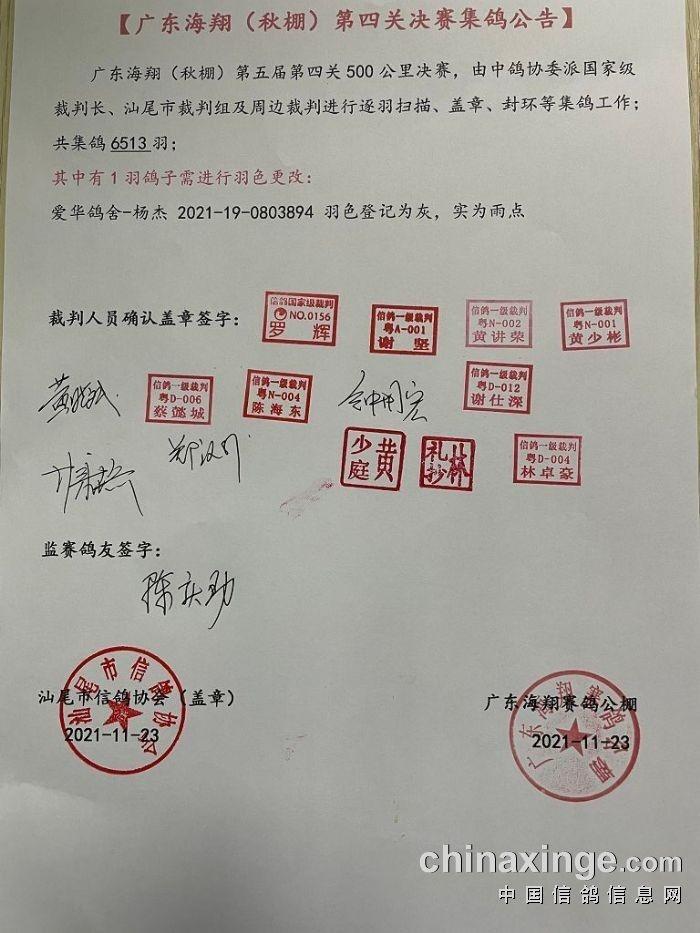 【广东海翔（秋棚）第四关决赛集鸽公告】
广东海翔（秋棚）第五届第四关500公里决赛，由中鸽协委派国家级
裁判长、汕尾市裁判组及周边裁判进行逐羽扫描、盖章、封环等集鸽工作；
共集鸽6513羽；
其中有1羽鸽子需进行羽色更改：
爱华鸽舍-杨杰 2021-19-0803894 羽色登记为灰，实为雨点
裁判人员确认盖章签字：
信鸽国家级裁判
NO.0156
罗辉
信鸽一级裁判
粤A-001
谢坚
信鸽一级裁判
粤N-002
黄讲荣
信鸽一级裁判
粤N-001
黄少彬
信鸽一级裁判
粤D-006
蔡懿城
信鸽一级裁判
粤N-004
陈海东
信鸽一级裁判
粤D-012
谢仕深
黄少庭
林礼抄
信鸽一级裁判
粤D-004
林卓豪
监赛鸽友签字：
陈庆勋
汕尾市信鸽协会（盖章）
2021-11-23
汕尾市信鸽协会
广东海翔赛鸽公棚
2021-11-23
广东海翔赛鸽公棚
chinaxinge.com
中国信鸽信息网